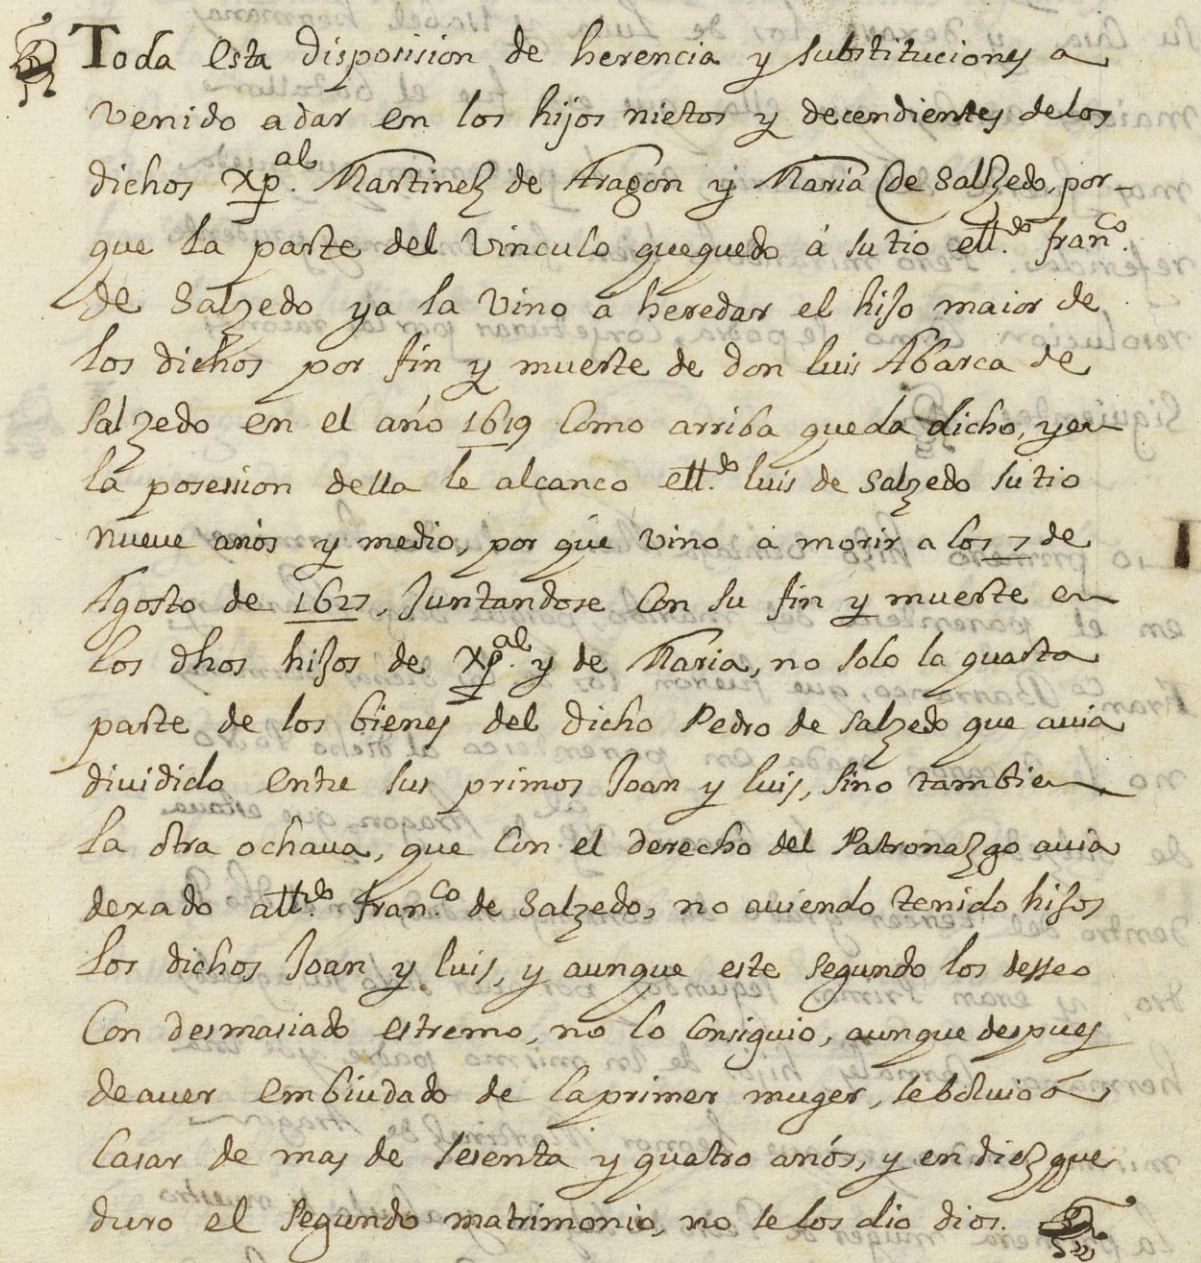 Toda esta disposision de herencia y substituciones a
venido adar en los hijos nietos y decendientes delos
dichos Xpal. Martinez de Aragon y Maria de Salzedo, por-
que la parte del vinculo quequedo á su tio ell.do fran.co
de Salzedo ya la vino á heredar el hijo maior de
los dichos por fin y muerte de don luis Abarca de
Salzedo en el año 1619 como arriba queda dicho, yen
la posession della le alcanco ell.do luis de Salzedo su tio
nueve años y medio, por que vino á morir a los 7 de
Agosto de 1627, Juntandose con su fin y muerte en
los dhos hijos de Xpal. y de Maria, no solo la quarta
parte de los bienes del dicho Pedro de Salzedo que auia
dividido entre sus primos Joan y luis, sino tambien
la otra ochaua, que con el derecho del Patronazgo auia
dexado all.do fran.co de Salzedo, no auiendo tenido hijos
los dichos Joan y luis, y aunque este segundo los desseo
con desmasiado estremo, no lo consiguio, aunque despues
deauer embiudado de laprimer muger, sebolvió á
casar de mas de sesenta y quatro años, y en diez que
duro el segundo matrimonio, no se los dio dios.